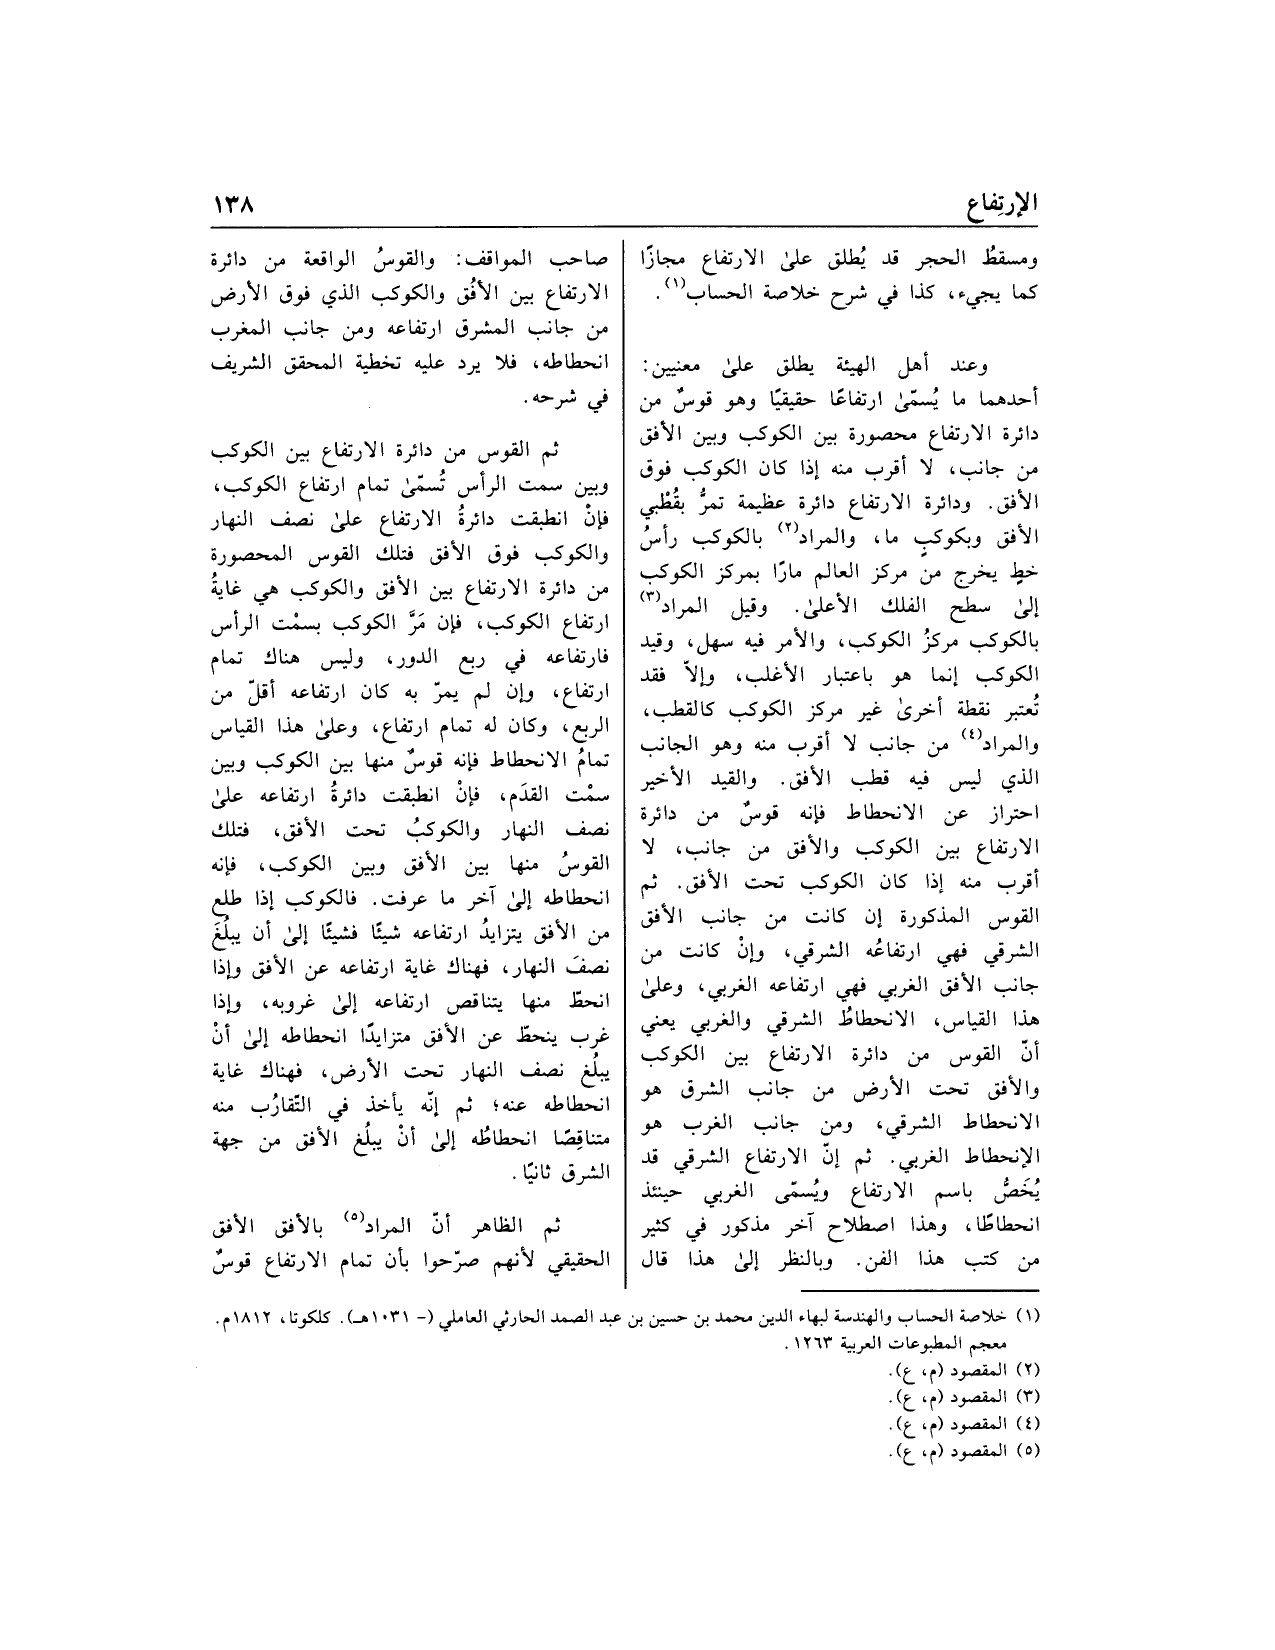 الإرتِفاع
١٣٨
ومسقطُ الحجر قد يُطلق علىٰ الارتفاع مجازًا
كما يجيء، كذا في شرح خلاصة الحساب(١).
وعند أهل الهيئة يطلق علىٰ معنيين:
أحدهما ما يُسمّىٰ ارتفاعًا حقيقيًا وهو قوسٌ من
دائرة الارتفاع محصورة بين الكوكب وبين الأفق
من جانب، لا أقرب منه إذا كان الكوكب فوق
الأفق. ودائرة الارتفاع دائرة عظيمة تمرُّ بقُطْبي
الأفق وبكوكبٍ ما، والمراد(٢) بالكوكب رأسُ
خطٍ يخرج من مركز العالم مارًا بمركز الكوكب
إلىٰ سطح الفلك الأعلىٰ. وقيل المراد(٣)
بالكوكب مركزُ الكوكب، والأمر فيه سهل، وقيد
الكوكب إنما هو باعتبار الأغلب، وإلاّ فقد
تُعتبر نقطة أخرىٰ غير مركز الكوكب كالقطب،
والمراد(٤) من جانب لا أقرب منه وهو الجانب
الذي ليس فيه قطب الأفق. والقيد الأخير
احتراز عن الانحطاط فإنه قوسٌ من دائرة
الارتفاع بين الكوكب والأفق من جانب، لا
أقرب منه إذا كان الكوكب تحت الأفق. ثم
القوس المذكورة إن كانت من جانب الأفق
الشرقي فهي ارتفاعُه الشرقي، وإنْ كانت من
جانب الأفق الغربي فهي ارتفاعه الغربي، وعلىٰ
هذا القياس، الانحطاطُ الشرقي والغربي يعني
أنّ القوس من دائرة الارتفاع بين الكوكب
والأفق تحت الأرض من جانب الشرق هو
الانحطاط الشرقي، ومن جانب الغرب هو
الإنحطاط الغربي. ثم إنّ الارتفاع الشرقي قد
يُخَصُّ باسم الارتفاع ويُسمّى الغربي حينئذ
انحطاطًا، وهذا اصطلاح آخر مذكور في كثير
من كتب هذا الفن. وبالنظر إلىٰ هذا قال
صاحب المواقف: والقوسُ الواقعة من دائرة
الارتفاع بين الأفُق والكوكب الذي فوق الأرض
من جانب المشرق ارتفاعه ومن جانب المغرب
انحطاطه، فلا يرد عليه تخطية المحقق الشريف
في شرحه.
ثم القوس من دائرة الارتفاع بين الكوكب
وبين سمت الرأس تُسمّىٰ تمام ارتفاع الكوكب،
فإنْ انطبقت دائرةُ الارتفاع علىٰ نصف النهار
والكوكب فوق الأفق فتلك القوس المحصورة
من دائرة الارتفاع بين الأفق والكوكب هي غايةُ
ارتفاع الكوكب، فإن مَرَّ الكوكب بسمْت الرأس
فارتفاعه في ربع الدور، وليس هناك تمام
ارتفاع، وإن لم يمرّ به كان ارتفاعه أقلّ من
الربع، وكان له تمام ارتفاع، وعلىٰ هذا القياس
تمامُ الانحطاط فإنه قوسٌ منها بين الكوكب وبين
سمْت القدَم، فإنْ انطبقت دائرةُ ارتفاعه علىٰ
نصف النهار والكوكبُ تحت الأفق، فتلك
القوسُ منها بين الأفق وبين الكوكب، فإنه
انحطاطه إلىٰ آخر ما عرفت. فالكوكب إذا طلع
من الأفق يتزايدُ ارتفاعه شيئًا فشيئًا إلىٰ أن يبلُغَ
نصفَ النهار، فهناك غاية ارتفاعه عن الأفق وإذا
انحطّ منها يتناقص ارتفاعه إلىٰ غروبه، وإذا
غرب ينحطّ عن الأفق متزايدًا انحطاطه إلىٰ أنْ
يبلُغ نصف النهار تحت الأرض، فهناك غاية
انحطاطه عنه؛ ثم إنّه يأخذ في التّقارُب منه
متناقِصًا انحطاطُه إلىٰ أنْ يبلُغ الأفق من جهة
الشرق ثانيًا.
ثم الظاهر أنّ المراد(٥) بالأفق الأفق
الحقيقي لأنهم صرّحوا بأن تمام الارتفاع قوسٌ
(١) خلاصة الحساب والهندسة لبهاء الدين محمد بن حسين بن عبد الصمد الحارثي العاملي (- ١٠٣١هـ). كلكوتا، ١٨١٢م.
معجم المطبوعات العربية ١٢٦٣.
(٢) المقصود (م، ع).
(٣) المقصود (م، ع).
(٤) المقصود (م، ع).
(٥) المقصود (م، ع).